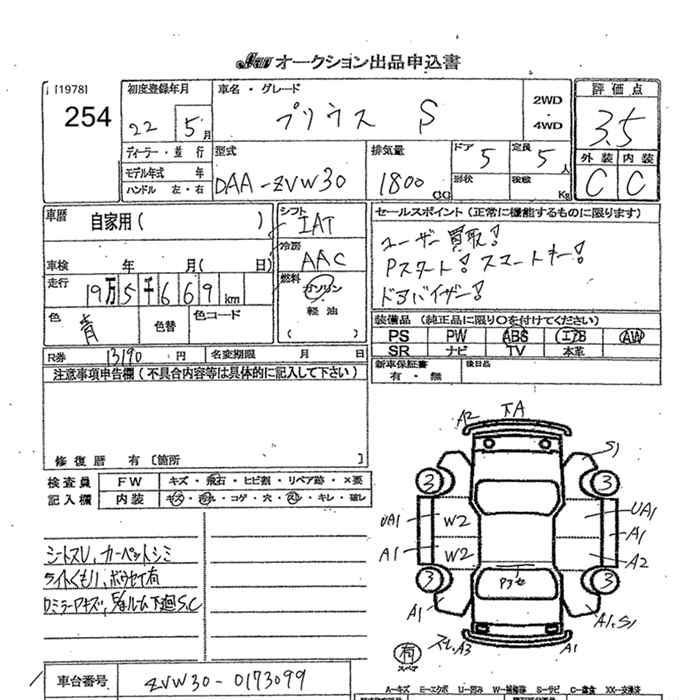 JAU オークション出品申込書
[1978]
254
初度登録年月
22 5 月
車名・グレード
プリウス S
2WD
・
4WD
評価点
3.5
ディーラー・並行
モデル年式 年
ハンドル 左・右
型式
DAA-ZVW30
排気量
1800 CC
ドア
5
形状
定員
5 人
積載 Kg
外装 内装
C C
車歴
自家用( )
シフト
IAT
セールスポイント(正常に機能するものに限ります)
ユーザー買取!
Pスタート! スマートキー!
ドアバイザー!
冷房
AAC
車検 年 月( 日)
走行
19万5千669 km
燃料
ガソリン
・
軽油
( )
色
青
色替
色コード
装備品(純正品に限り○を付けてください)
PS PW ABS エアB AW
SR ナビ TV 本革
R券 13190 円
名変期限 月 日
新車保証書
有・無
後日品
注意事項申告欄(不具合内容等は具体的に記入して下さい)
修復歴 有[箇所 ]
検査員
記入欄
FW
キズ・飛石・ヒビ割・リペア跡・X要
内装
キズ・汚れ・コゲ・穴・スレ・キレ・破レ
シートスレ、カーペットシミ
ライトくもり、ホウセイ有
下廻S.C
A2
S1
3
3
UA1
W2
UA1
A1
A1
W2
A2
3
3
A1
A1,S1
スレ,A3
A1
有
スペア
車台番号
ZVW30-0173099
A―キズ E―エクボ U―凹み W―補修跡 S―サビ C―腐食 XX―交換済